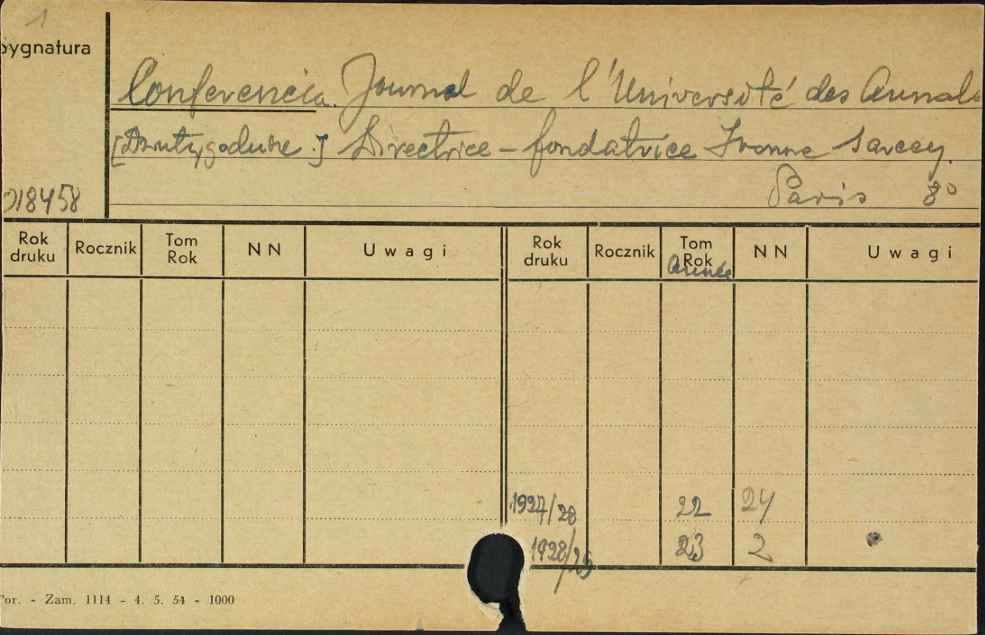 1
Sygnatura
Conferencia. Journal de l'Université des Annales
[Dwutygodnik.] Directrice - fondatrice Yvonne Sarcey.
Paris 8°
018458
Rok druku Rocznik Tom Rok NN Uwagi Rok druku Rocznik Tom Rok Année NN Uwagi
1927/28 22 24
1928/29 23 2
Tor. - Zam. 1114 - 4. 5. 54 - 1000